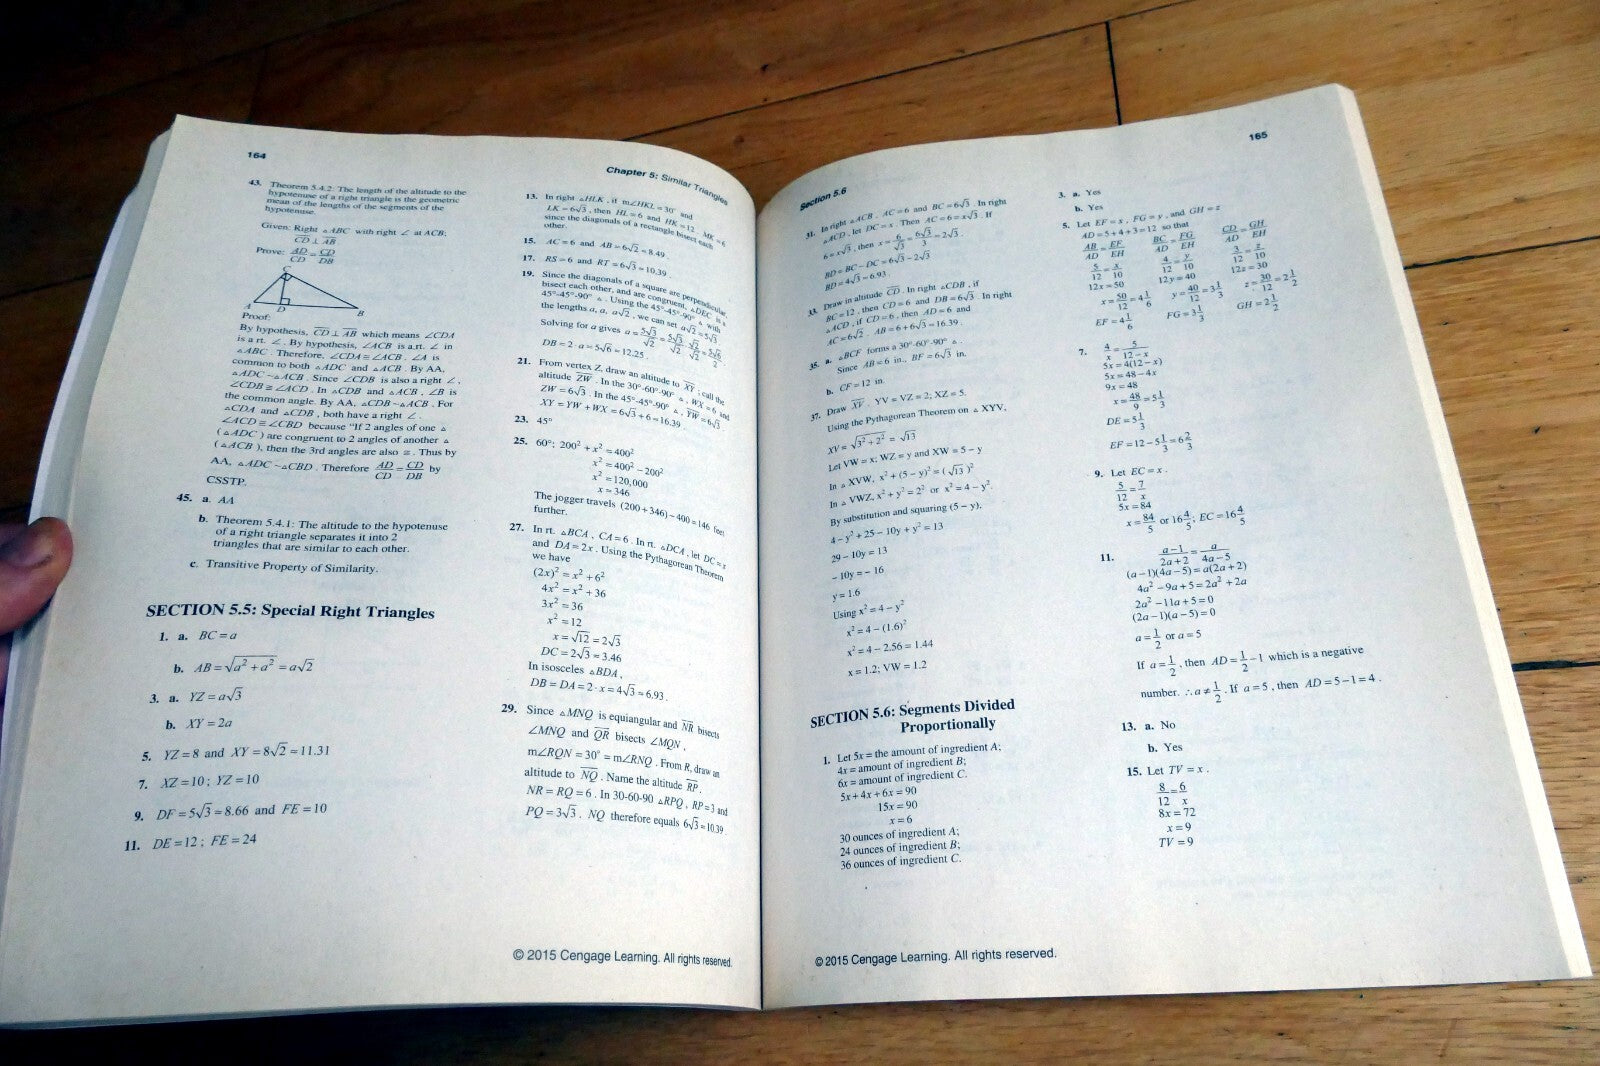 164
Chapter 5: Similar Triangles
43. Theorem 5.4.2: The length of the altitude to the
hypotenuse of a right triangle is the geometric
mean of the lengths of the segments of the
hypotenuse.
Given: Right △ABC with right ∠ at ACB;
CD ⊥ AB
Prove: AD/CD = CD/DB
C
A
D
B
Proof:
By hypothesis, CD ⊥ AB which means ∠CDA
is a rt. ∠. By hypothesis, ∠ACB is a rt. ∠ in
△ABC. Therefore, ∠CDA ≅ ∠ACB. ∠A is
common to both △ADC and △ACB. By AA,
△ADC ~ △ACB. Since ∠CDB is also a right ∠,
∠CDB ≅ ∠ACD. In △CDB and △ACB, ∠B is
the common angle. By AA, △CDB ~ △ACB. For
△CDA and △CDB, both have a right ∠.
∠ACD ≅ ∠CBD because "If 2 angles of one △
(△ADC) are congruent to 2 angles of another △
(△ACB), then the 3rd angles are also ≅. Thus by
AA, △ADC ~ △CBD. Therefore AD/CD = CD/DB by
CSSTP.
45. a. AA
b. Theorem 5.4.1: The altitude to the hypotenuse
of a right triangle separates it into 2
triangles that are similar to each other.
c. Transitive Property of Similarity.
SECTION 5.5: Special Right Triangles
1. a. BC = a
b. AB = √(a² + a²) = a√2
3. a. YZ = a√3
b. XY = 2a
5. YZ = 8 and XY = 8√2 ≈ 11.31
7. XZ = 10; YZ = 10
9. DF = 5√3 ≈ 8.66 and FE = 10
11. DE = 12; FE = 24
13. In right △HLK, if m∠HKL = 30° and
LK = 6√3, then HL = 6 and HK = 12. MK = 6
since the diagonals of a rectangle bisect each
other.
15. AC = 6 and AB = 6√2 ≈ 8.49.
17. RS = 6 and RT = 6√3 ≈ 10.39.
19. Since the diagonals of a square are perpendicular,
bisect each other, and are congruent, △DEC is a
45°-45°-90° △. Using the 45°-45°-90° △ with
the lengths a, a, a√2, we can set a√2 = 5√3
Solving for a gives a = 5√3/√2 = 5√3/√2 · √2/√2 = 5√6/2
DB = 2 · a = 5√6 ≈ 12.25.
21. From vertex Z, draw an altitude to XY; call the
altitude ZW. In the 30°-60°-90° △, WX = 6 and
ZW = 6√3. In the 45°-45°-90° △, YW = 6√3.
XY = YW + WX = 6√3 + 6 ≈ 16.39.
23. 45°
25. 60°; 200² + x² = 400²
x² = 400² − 200²
x² = 120,000
x ≈ 346
The jogger travels (200 + 346) − 400 ≈ 146 feet
further.
27. In rt. △BCA, CA = 6. In rt. △DCA, let DC = x
and DA = 2x. Using the Pythagorean Theorem
we have
(2x)² = x² + 6²
4x² = x² + 36
3x² = 36
x² = 12
x = √12 = 2√3
DC = 2√3 ≈ 3.46
In isosceles △BDA,
DB = DA = 2 · x = 4√3 ≈ 6.93.
29. Since △MNQ is equiangular and NR bisects
∠MNQ and QR bisects ∠MQN,
m∠RQN = 30° = m∠RNQ. From R, draw an
altitude to NQ. Name the altitude RP.
NR = RQ = 6. In 30-60-90 △RPQ, RP = 3 and
PQ = 3√3. NQ therefore equals 6√3 ≈ 10.39
© 2015 Cengage Learning. All rights reserved.
Section 5.6
165
31. In right △ACB, AC = 6 and BC = 6√3. In right
△ACD, let DC = x. Then AC = 6 = x√3. If
6 = x√3, then x = 6/√3 = 6√3/3 = 2√3.
BD = BC − DC = 6√3 − 2√3
BD = 4√3 ≈ 6.93.
33. Draw in altitude CD. In right △CDB, if
BC = 12, then CD = 6 and DB = 6√3. In right
△ACD, if CD = 6, then AD = 6 and
AC = 6√2. AB = 6 + 6√3 ≈ 16.39.
35. a. △BCF forms a 30°-60°-90° △.
Since AB = 6 in., BF = 6√3 in.
b. CF = 12 in.
37. Draw XV. YV = VZ = 2; XZ = 5.
Using the Pythagorean Theorem on △XYV,
XV = √(3² + 2²) = √13
Let VW = x; WZ = y and XW = 5 − y
In △XVW, x² + (5 − y)² = (√13)²
In △VWZ, x² + y² = 2² or x² = 4 − y².
By substitution and squaring (5 − y),
4 − y² + 25 − 10y + y² = 13
29 − 10y = 13
−10y = −16
y = 1.6
Using x² = 4 − y²
x² = 4 − (1.6)²
x² = 4 − 2.56 = 1.44
x = 1.2; VW = 1.2
SECTION 5.6: Segments Divided
Proportionally
1. Let 5x = the amount of ingredient A;
4x = amount of ingredient B;
6x = amount of ingredient C.
5x + 4x + 6x = 90
15x = 90
x = 6
30 ounces of ingredient A;
24 ounces of ingredient B;
36 ounces of ingredient C.
3. a. Yes
b. Yes
5. Let EF = x, FG = y, and GH = z
AD = 5 + 4 + 3 = 12 so that
AB/AD = EF/EH BC/AD = FG/EH CD/AD = GH/EH
5/12 = x/10 4/12 = y/10 3/12 = z/10
12x = 50 12y = 40 12z = 30
x = 50/12 = 4 1/6 y = 40/12 = 3 1/3 z = 30/12 = 2 1/2
EF = 4 1/6 FG = 3 1/3 GH = 2 1/2
7. 4/x = 5/(12 − x)
5x = 4(12 − x)
5x = 48 − 4x
9x = 48
x = 48/9 = 5 1/3
DE = 5 1/3
EF = 12 − 5 1/3 = 6 2/3
9. Let EC = x.
5/12 = 7/x
5x = 84
x = 84/5 or 16 4/5; EC = 16 4/5
11. (a − 1)/(2a + 2) = a/(4a − 5)
(a − 1)(4a − 5) = a(2a + 2)
4a² − 9a + 5 = 2a² + 2a
2a² − 11a + 5 = 0
(2a − 1)(a − 5) = 0
a = 1/2 or a = 5
If a = 1/2, then AD = 1/2 − 1 which is a negative
number. ∴ a ≠ 1/2. If a = 5, then AD = 5 − 1 = 4.
13. a. No
b. Yes
15. Let TV = x.
8/12 = 6/x
8x = 72
x = 9
TV = 9
© 2015 Cengage Learning. All rights reserved.